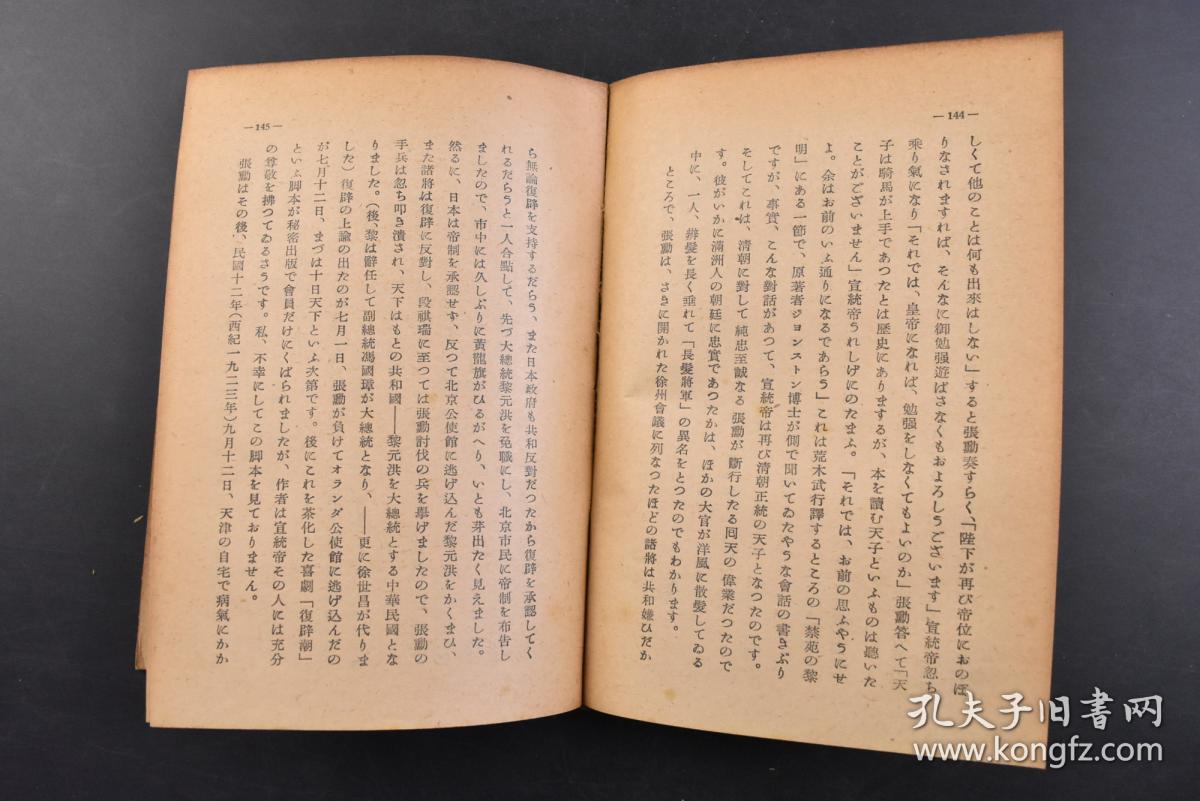 —144—
しくて他のことは何も出來はしない」すると張勳奏すらく、「陛下が再び帝位におのぼ
りなされますれば、そんなに御勉强遊ばさなくもおよろしうございます」宣統帝忽ち
乘り氣になり「それでは、皇帝になれば、勉强をしなくてもよいのか」張勳答へて「天
子は騎馬が上手であつたとは歷史にありますが、本を讀む天子といふものは聽いた
ことがございません」宣統帝うれしげにのたまふ。「それでは、お前の思ふやうにせ
よ。余はお前のいふ通りになるであらう」これは荒木武行譯するところの「禁苑の黎
明」にある一節で、原著者ジョンストン博士が側で聞いてゐたやうな會話の書きぶり
ですが、事實、こんな對話があつて、宣統帝は再び清朝正統の天子となつたのです。
そしてこれは、清朝に對して純忠至誠なる張勳が斷行したる囘天の偉業だつたので
す。彼がいかに滿洲人の朝廷に忠實であつたかは、ほかの大官が洋風に散髮してゐる
中に、一人、辮髮を長く垂れて「長髮將軍」の異名をとつたのでもわかります。
ところで、張勳は、さきに開かれた徐州會議に列なつたほどの諸將は共和嫌ひだか
—145—
ら無論復辟を支持するだらう、また日本政府も共和反對だつたから復辟を承認してく
れるだらうと一人合點して、先づ大總統黎元洪を免職にし、北京市民に帝制を布告し
ましたので、市中には久しぶりに黃龍旗がひるがへり、いとも芽出たく見えました。
然るに、日本は帝制を承認せず、反つて北京公使館に逃げ込んだ黎元洪をかくまひ、
また諸將は復辟に反對し、段祺瑞に至つては張勳討伐の兵を擧げましたので、張勳の
手兵は忽ち叩き潰され、天下はもとの共和國——黎元洪を大總統とする中華民國とな
りました。(後、黎は辭任して副總統馮國璋が大總統となり、——更に徐世昌が代りま
した)復辟の上諭の出たのが七月一日、張勳が負けてオランダ公使館に逃げ込んだの
が七月十二日、まづは十日天下といふ次第です。後にこれを茶化した喜劇「復辟潮」
といふ脚本が秘密出版で會員だけにくばられましたが、作者は宣統帝その人には充分
の尊敬を拂つてゐるさうです。私、不幸にしてこの脚本を見ておりません。
張勳はその後、民國十二年(西紀一九二三年)九月十二日、天津の自宅で病氣にかか
孔夫子旧书网
www.kongfz.com